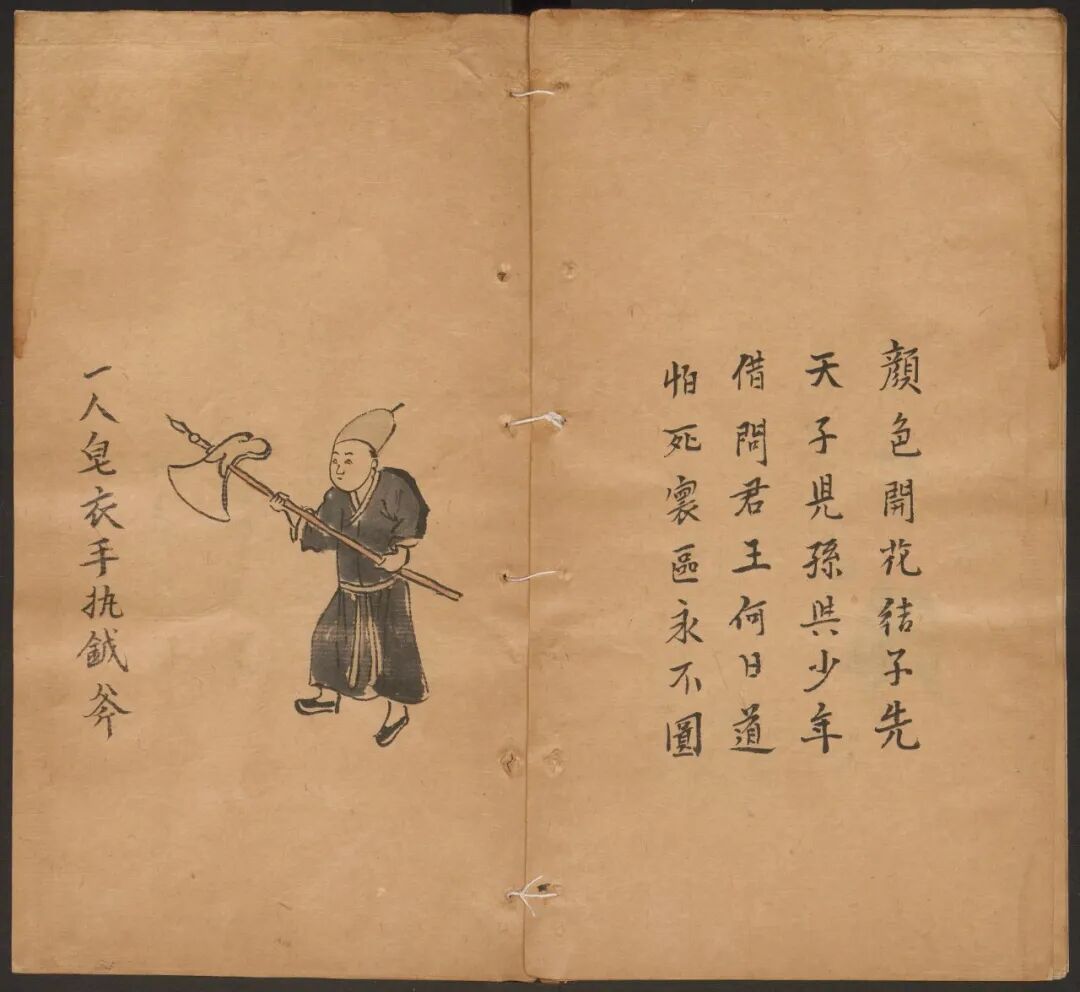 顔色開花結子先
天子児孫與少年
借問君王何日道
怕死寰區永不圓
一人皂衣手执鉞斧